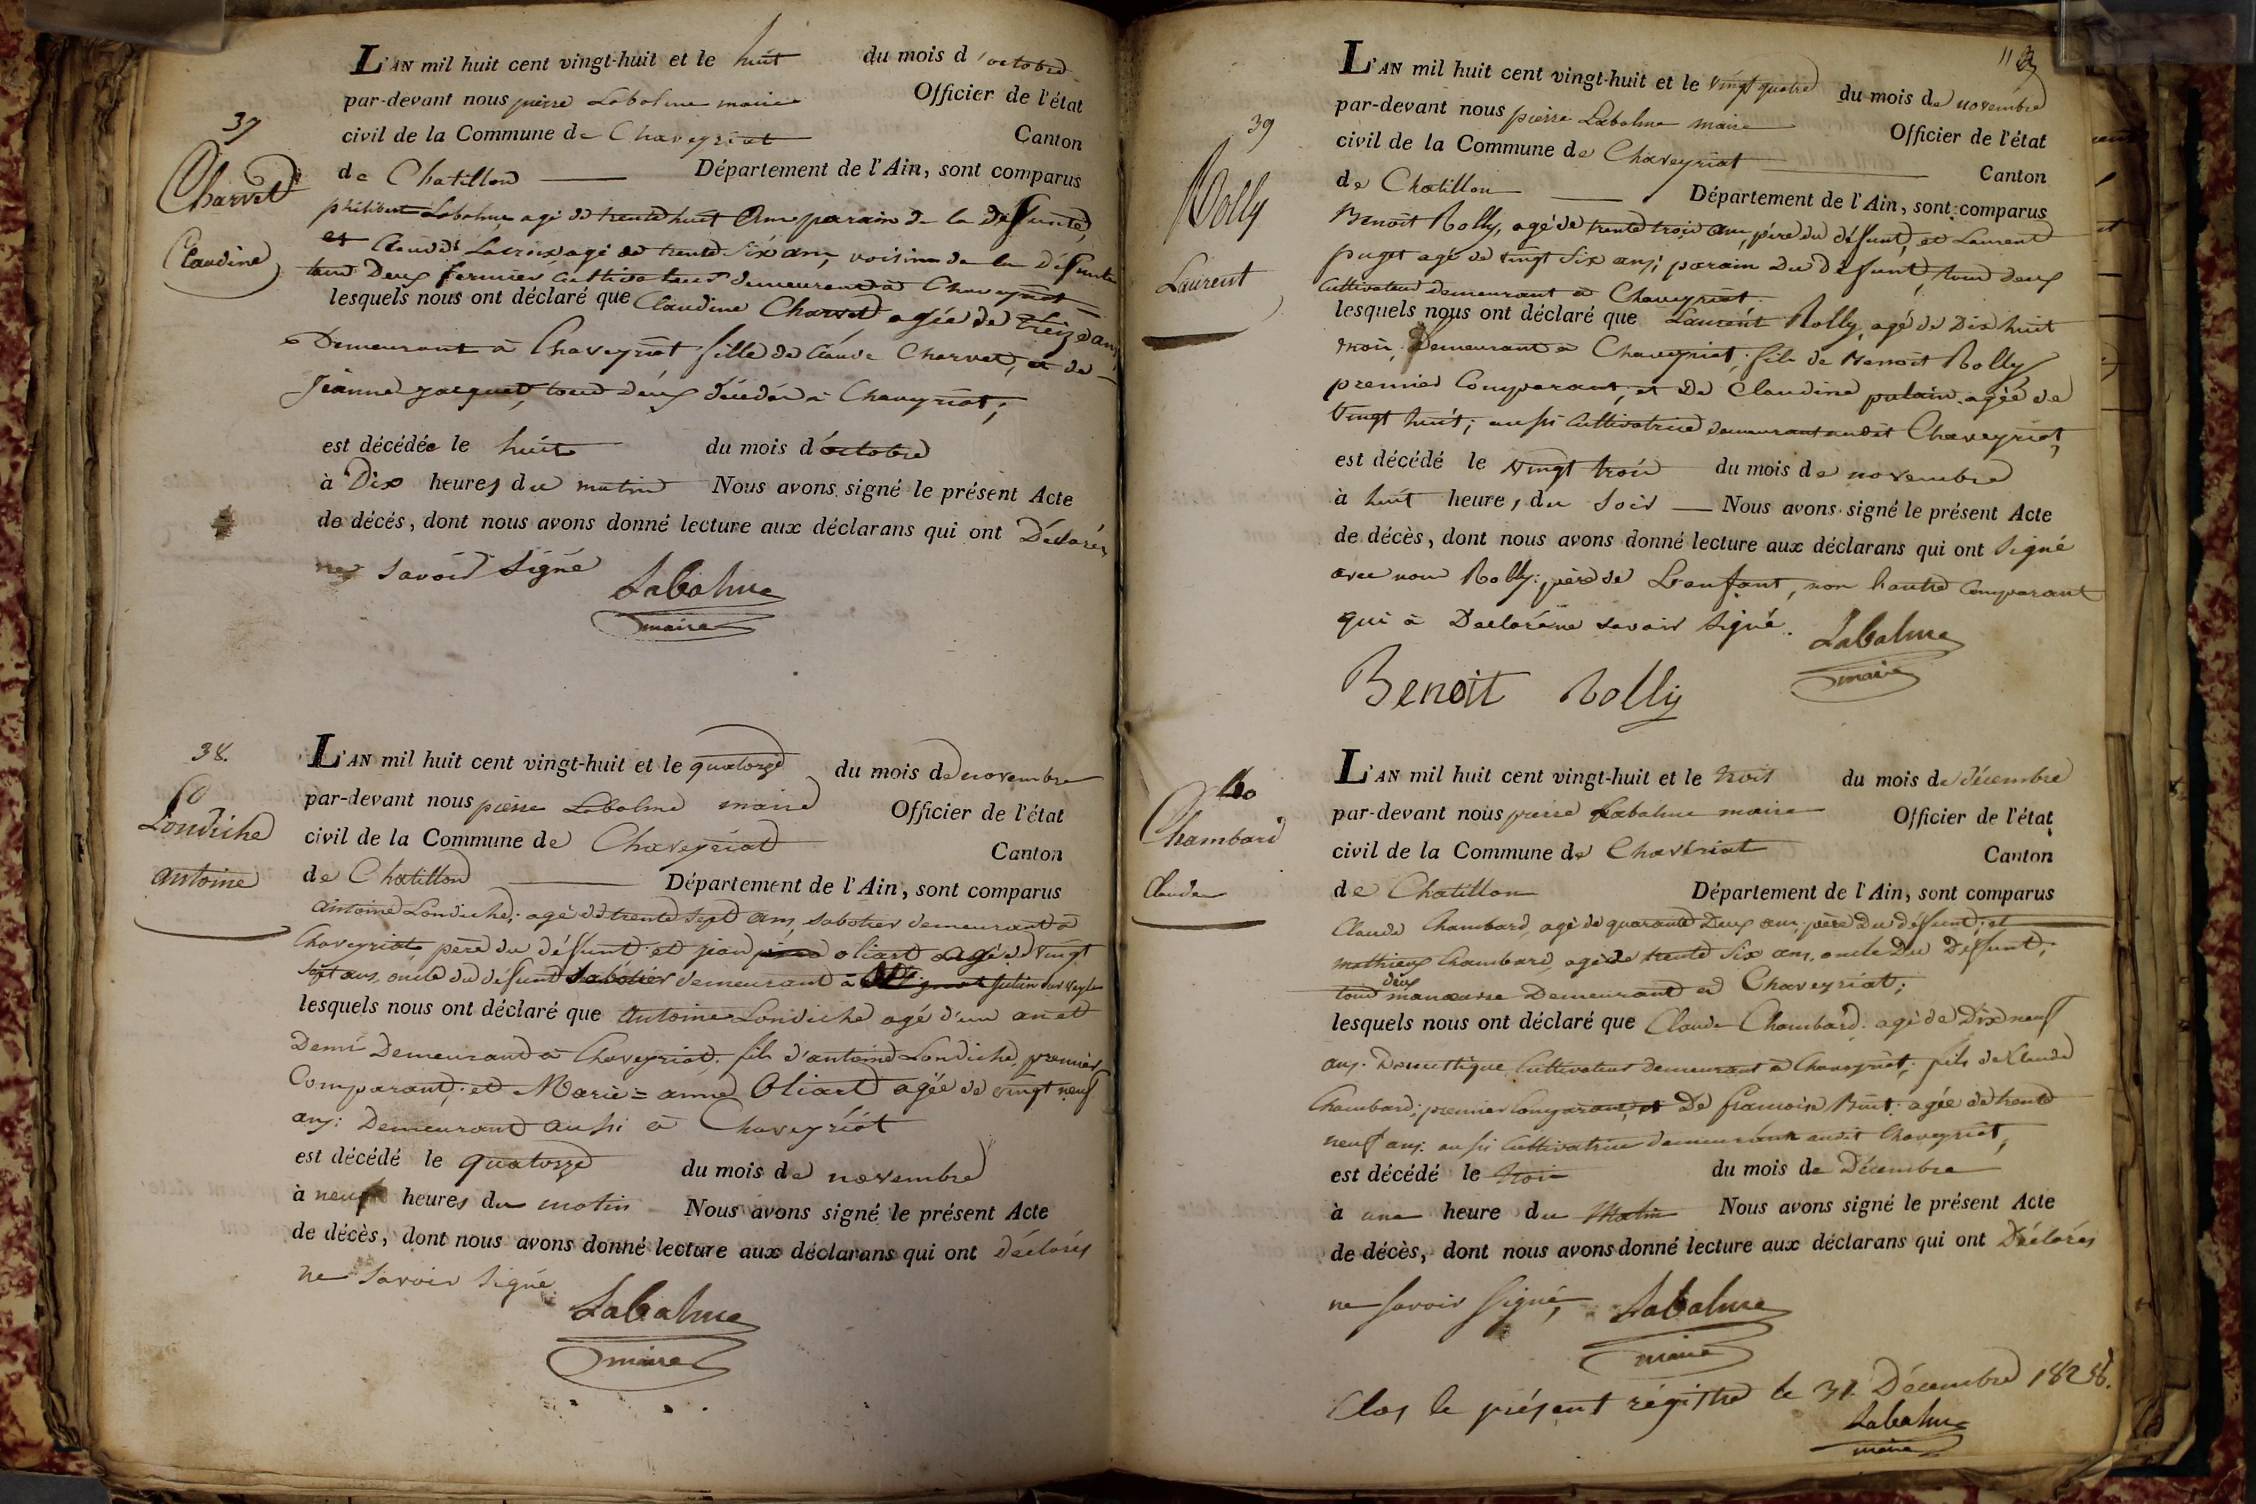 37
Charvet
Claudine
L'AN mil huit cent vingt-huit et le huit du mois d'octobre
par-devant nous pierre Labalme maire Officier de l'état
civil de la Commune de Chaveyriat Canton
de Chatillon Département de l'Ain, sont comparus
philibert Labalme agé de trente huit ans parain de la defunte,
et Claude Lacroix agé de trente six ans, voisin de la défunte
tous Deux fermier cultivateurs demeurant à Chaveyriat
lesquels nous ont déclaré que Claudine Charvet agée de treize ans
Demeurant à Chaveyriat fille de Claude Charvet, et de
Jeanne jacquet, tous deux décédés à Chaveyriat;
est décédée le huit du mois d'octobre
à Dix heures du matin Nous avons signé le présent Acte
de décés, dont nous avons donné lecture aux déclarans qui ont Déclarés
ne savoir signé
Labalme
maire
38.
Londiche
antoine
L'AN mil huit cent vingt-huit et le quatorze du mois de novembre
par-devant nous pierre Labalme maire Officier de l'état
civil de la Commune de Chaveyriat Canton
de Chatillon Département de l'Ain, sont comparus
antoine Londiche, agé de trente sept ans, sabotier demeurant à
Chaveyriat, père du défunt et jean oliart agé de vingt
sept ans, oncle du defunt sabotier demeurant à
lesquels nous ont déclaré que antoine Londiche agé d'un an et
Demi Demeurant à Chaveyriat, fils d'antoine Londiche, premier
Comparant, et Marie = anne Oliart agée de vingt neuf
ans: Demeurant aussi à Chaveyriat
est décédé le quatorze du mois de novembre
à neuf heures du matin Nous avons signé le présent Acte
de décès, dont nous avons donné lecture aux déclarans qui ont déclarés
ne savoir signé
Labalme
maire
113
39
Rolly
Laurent
L'AN mil huit cent vingt-huit et le vingt quatre du mois de novembre
par-devant nous pierre Labalme maire Officier de l'état
civil de la Commune de Chaveyriat Canton
de Chatillon Département de l'Ain, sont comparus
Benoit Rolly, agé de trente trois ans, père du défunt, et Laurent
puget agé de vingt six ans; parain du défunt, tous deux
cultivateur demeurant à Chaveyriat.
lesquels nous ont déclaré que Laurent Rolly, agé de Dix huit
mois, Demeurant à Chaveyriat, fils de Benoit Rolly
premier Comparant, et De Claudine pulain agée de
vingt huit; aussi cultivatrice demeurant audit Chaveyriat,
est décédé le vingt trois du mois de novembre
à huit heure, du soir Nous avons signé le présent Acte
de décès, dont nous avons donné lecture aux déclarans qui ont signé
avec nous Rolly: père de L'enfant, non l'autre comparant
qui à Declaré ne savoir signé.
Labalme
maire
Benoit Rolly
40
Chambard
Claude
L'AN mil huit cent vingt-huit et le trois du mois de décembre
par-devant nous pierre Labalme maire Officier de l'état
civil de la Commune de Chavériat Canton
de Chatillon Département de l'Ain, sont comparus
Claude Chambard, agé de quarante Deux ans, père Du défunt, et
mathieux Chambard, agé de trente six ans, oncle Du Défunt,
tous deux manœuvre Demeurant à Chaveyriat;
lesquels nous ont déclaré que Claude Chambard, agé de Dix neuf
ans. Domestique Cultivateur demeurant à Chaveyriat, fils de Claude
Chambard, premier Comparant, et De francoise agée de trente
neuf ans. aussi cultivatrice demeurant audit Chaveyriat,
est décédé le trois du mois de Décembre
à une heure du Matin Nous avons signé le présent Acte
de décès, dont nous avons donné lecture aux déclarans qui ont Déclarés
ne savoir signé,
Labalme
maire
Clos le présent régistre le 31 Décembre 1828.
Labalme
maire